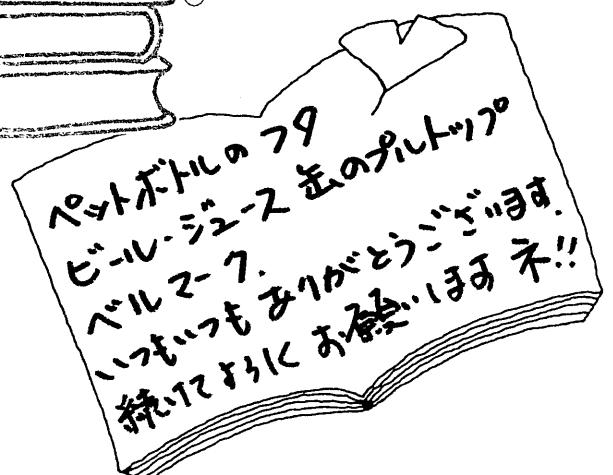 ペットボトルのフタ
ビール・ジュース缶のプルトップ
ベルマーク.
いつもいつもありがとうございます.
続けてよろしくお願いしますネ!!